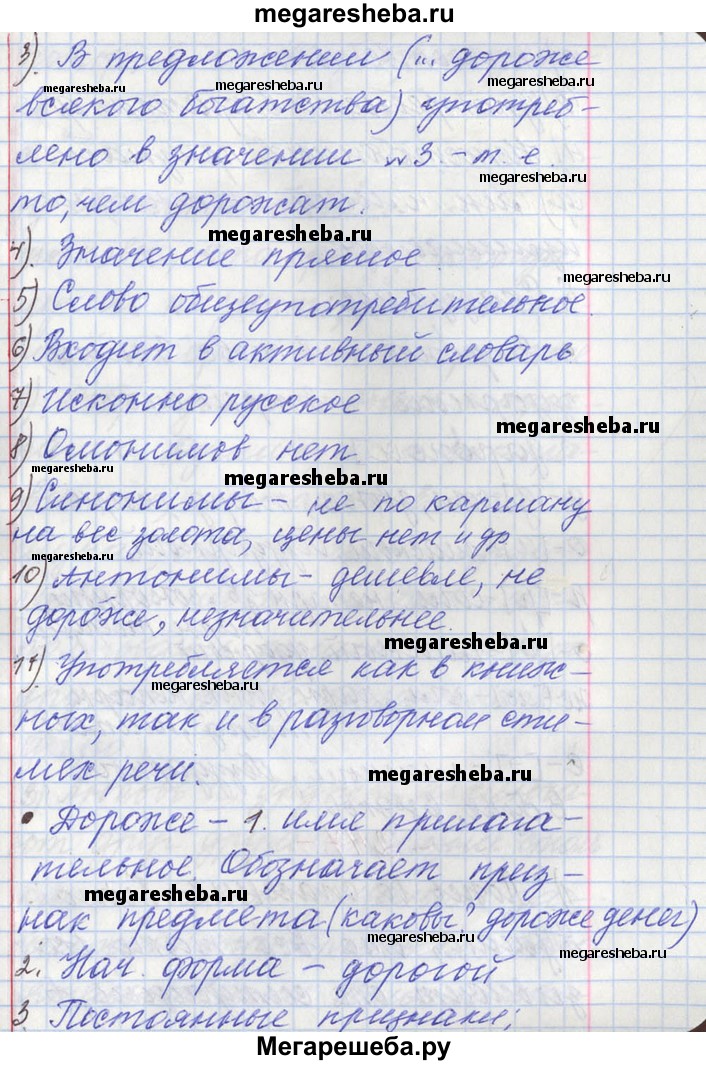 megaresheba.ru
3). В предложении (... дороже
megaresheba.ru
megaresheba.ru
всякого богатства) употреб-
лено в значении №3. - т. е.
megaresheba.ru
то, чем дорожат.
megaresheba.ru
4). Значение прямое
megaresheba.ru
5) Слово общеупотребительное.
6) Входит в активный словарь
7) Исконно русское
megaresheba.ru
8) Омонимов нет
megaresheba.ru
megaresheba.ru
9) Синонимы - не по карману
на вес золота, цены нет и др
megaresheba.ru
10) Антонимы - дешевле, не
дороже, незначительнее.
megaresheba.ru
11). Употребляется как в книж-
megaresheba.ru
ных, так и в разговорном сти-
лях речи.
megaresheba.ru
• Дороже - 1. имя прилага-
тельное. Обозначает приз-
megaresheba.ru
нак предмета (каковы? дороже денег)
megaresheba.ru
megaresheba.ru
2. Нач. форма - дорогой
3. Постоянные признаки:
Мегарешеба.ру